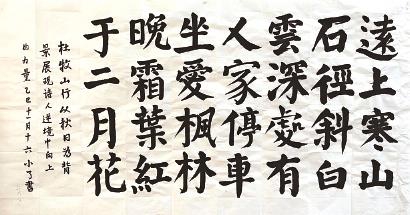 遠上寒山
石徑斜白
雲深處有
人家停車
坐愛楓林
晚霜葉紅
于二月花
杜牧山行以秋日為背
景展現诗人逆境中向上
的力量乙巳十一月十六小了書